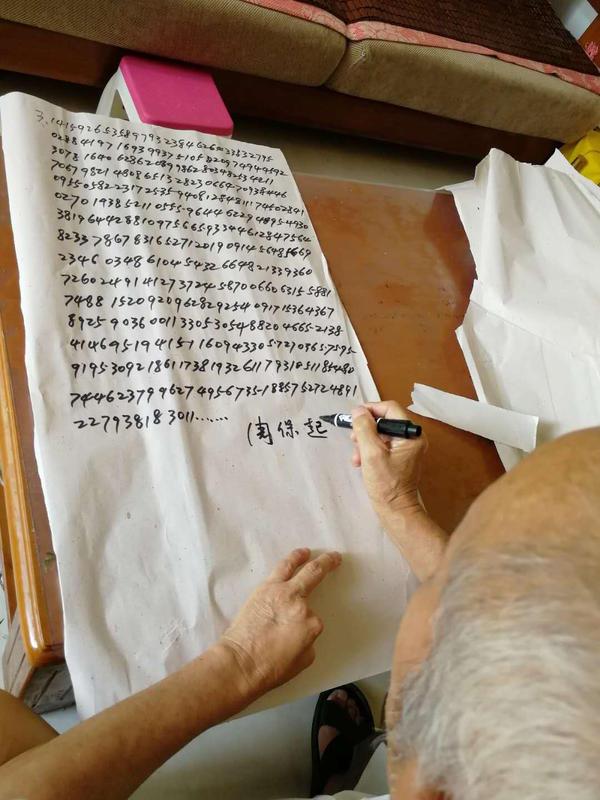 3.14159265358979323846264338332795
0288 4197 1693993751058209749445 92
3078 1640 628620899862803482534211
70679821 480865132823066470938446
095505822317253594081284811174502841
0270 1938521105559644622948954930
3819644288109756659334461284756 4
8233 7867831652712019091456485669
2346 034861045432664821339360
7260249141273724587006606315 5881
7488 1520920962829254091715364367
8925903600113305305488204665 2138
41469519415116094330572703657595
919530921861173819326117931051185480
74462379962749567351885752724891
227938183011......
保起